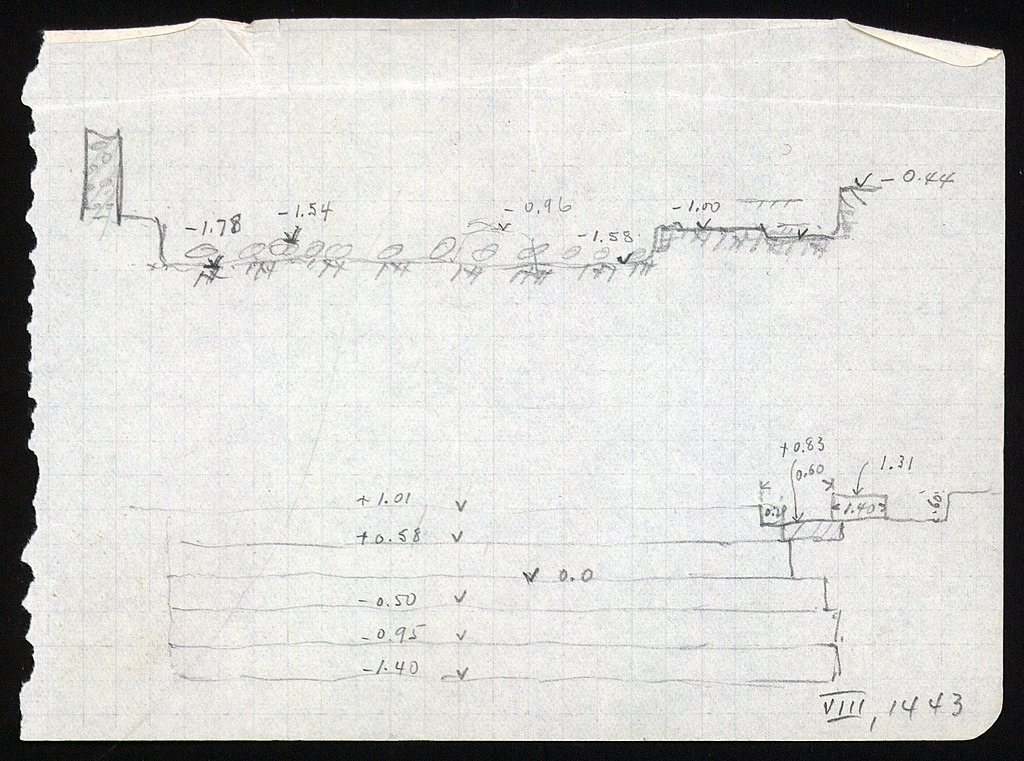 -0.44
-1.54 -0.96 -1.00
-1.78 -1.58
+0.83
0.60 1.31
+1.01
1.40
+0.58
0.0
-0.50
-0.95
-1.40
VIII, 1443